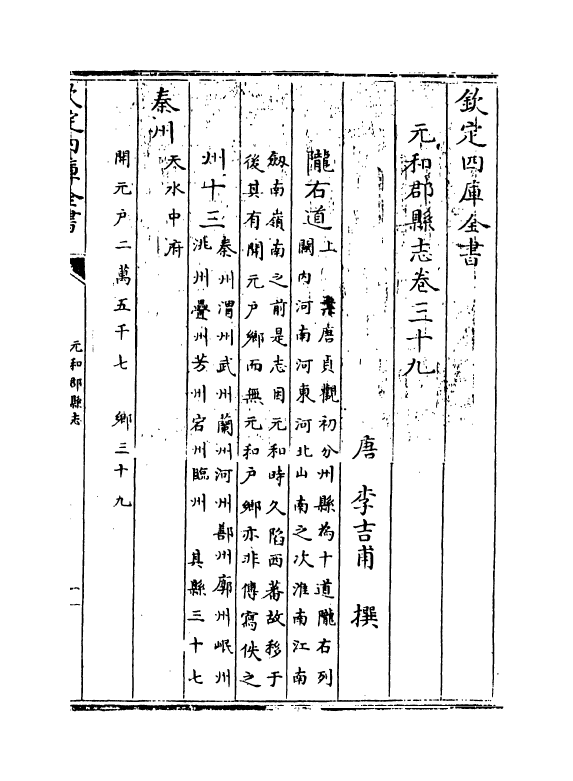 欽定四庫全書
元和郡縣志卷三十九
唐 李吉甫 撰
隴右道上
案唐貞觀初分州縣為十道隴右列
關內河南河東河北山南之次淮南江南
劔南嶺南之前是志因元和時久陷西蕃故移于
後其有開元戶鄉而無元和戶鄉亦非傳寫佚之
州十三
秦州渭州武州蘭州河州鄯州廓州岷州
洮州疊州芳州宕州臨州 具縣三十七
秦州
天水中府
開元戶二萬五千七 鄉三十九
欽定四庫全書
元和郡縣志
一